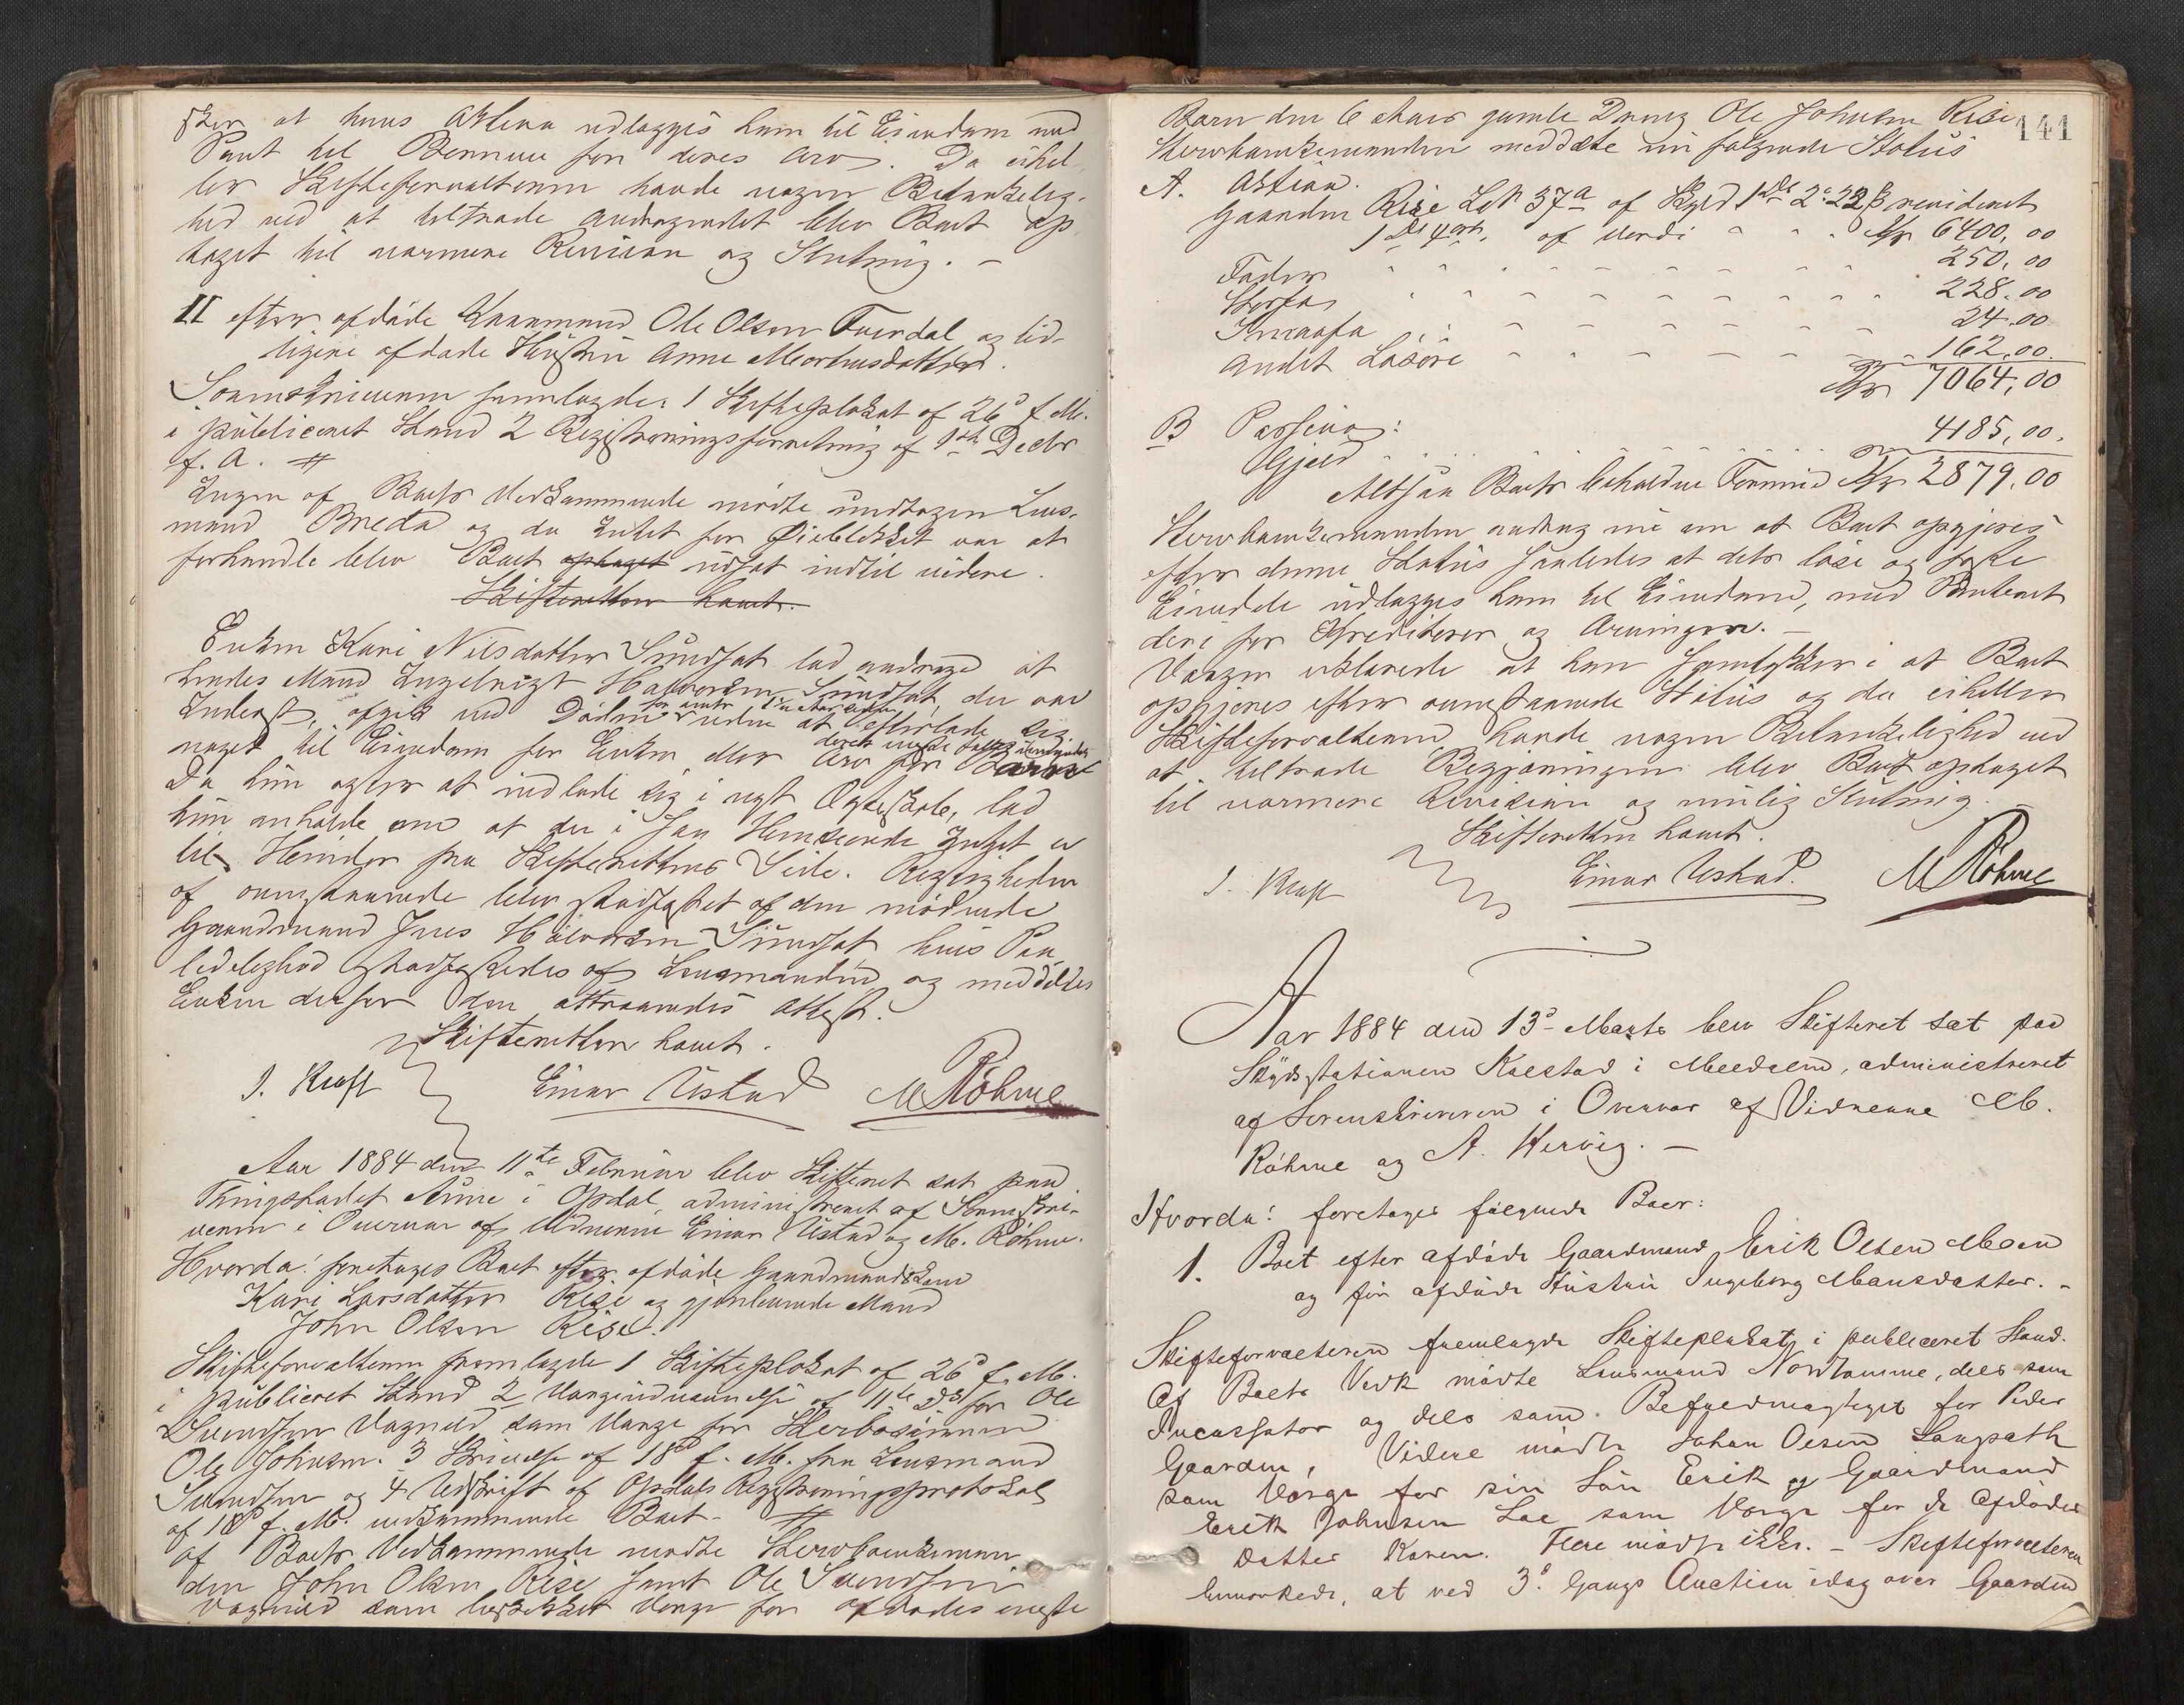 sker at hans Aktiva udlægges ham til Eiendom mod
Pant til Bernene for deres Arv. Da eihel-
ler Skifteforvalteren havde nogen Betænkelig-
hed ved at tiltræde Andragendet blev Boet op
taget til nærmere Revision og Slutning. -
II efter afdøde Kaarmand Ole Olsen Tverdal og tid-
ligere afdøde Hustru Anne Morhusdatter.
Sorenskriveren fremlagde: 1 Skifteplakat af 26de f. M.
i publiceret Stand 2 Registreringsforretning af 1ste Decbr
f. A. #
Ingen af Boets Vedkommende mødte undtagen Lens-
mand Breda og da Intet for Øieblikket var at
forhandle blev Boet optaget udsat indtil videre.
Skifteretten hævet.
Enken Kari Nilsdatter Sundset lod andrage at
hendes Mand Ingebrigt Halvorsen Sundset, der var
Inderst, afgik ved Døden for uden at efterlade sig
noget til Eiendom for Enken eller Arv for Børn
Da hun agter at indlade sig i nyt Ægteskab, lod
hun anholde om at der i saa Henseende Intet er
til Hinder fra Skifterettens Side. Rigtigheden
af ovenstaaende blev stadfæstet af den mødende
Gaardmand Jens Halvorsen Sundset hvis Paa
lidelighed stadfæstedes af Lensmanden og meddeltes
Enken derfor den attraaede Attest.
Skifteretten hævet.
J. Kraft Einar Ustad M Röhme
Aar 1884 den 11te Februar blev Skifteret sat paa
Thingstedet Aune i Opdal, administreret af Sorenskri-
veren i Overvær af Vidnerne Einar Ustad og M. Röhme.
Hvorda: foretages Boet efter afdøde Gaardmandskone
Kari Larsdatter Rise og gjenlevende Mand
John Olsen Rise.
Skifteforvalteren fremlagde 1 Skifteplakat af 26de f. M.
i publiceret Stand 2 Værgeudnævnelse af 11te ds for Ole
Svendsen Vognild som Værge for Stervbosønnen
Ole Johnsen. 3 Skrivelse af 18de f. M. fra Lensmand
Svendsen og 4 Udskrift af Opdals Registreringsprotokol
af 18de f. M. vedkommende Boet. #
Af Boets Vedkommende mødte Stervboenkeman
den John Olsen Rise samt Ole Svendsen
Vognild som beskikket Værge for afdødes eneste
141
Barn den 6 Aars gamle Dreng Ole Johnsen Rise
Stervboenkemanden meddelte nu følgende Status
A. Aktiva.
Gaarden Rise L№ 37a af Skyld 1 Dl 2 o 22 ß revideret
1 Dl 4 ort af Værdi - - - Kr 6400,00
Foder - - - - - - - - - 250,00
Storfæ - - - - - - - - - 228.00
Smaafæ - - - - - - - - 24.00
Andet Løsøre - - - - - - - 162,00.
Kr 7064,00
B Passiva:
Gjeld . . . . . . . . 4185,00.
Altsaa Boets beholdne Formue Kr 2879,00
Stervboenkemanden androg nu om at Boet opgjøres
efter denne Status saaledes at dets løse og faste
Eiendele udlægges ham til Eiendom, mod Panteret
deri for Kreditorer og Arvinger. -
Værgen erklærede at han samtykker i at Boet
opgjøres efter ovenstaaende Status og da eiheller
Skifteforvalteren havde nogen Betænkelighed ved
at tiltræde Begjæringen blev Boet optaget
til nærmere Revision og mulig Slutning. -
Skifteretten hævet.
J. Kraft Einar Ustad. M Röhme
Aar 1884 den 13de Marts blev Skifteret sat paa
Skydsstationen Kaestad i Meldalen, administreret
af Sorenskriveren i Overvær af Vidnerne M.
Röhme og A. Hervig. -
Hvorda: foretages følgende Boer:
1. Boet efter afdøde Gaardmand Erik Olsen Moen
og før afdøde Hustru Ingeborg Mansdatter. -
Skifteforvalteren fremlagde Skifteplakat i publiceret Stand.
Af Boets Vedk mødte Lensmand Nordtomme, dels som
Incassator og dels som Befuldmægtiget for Peder
Gaarden, Videre mødte Johan Olsen
som Værge for sin Søn Erik og Gaardmand
Erik Johnsen Loe som Værge for de Afdødes
Datter Karen. Flere mødte ikke. - Skifteforvalteren
bemærkede, at ved 3de Gangs Auction idag over Gaarden